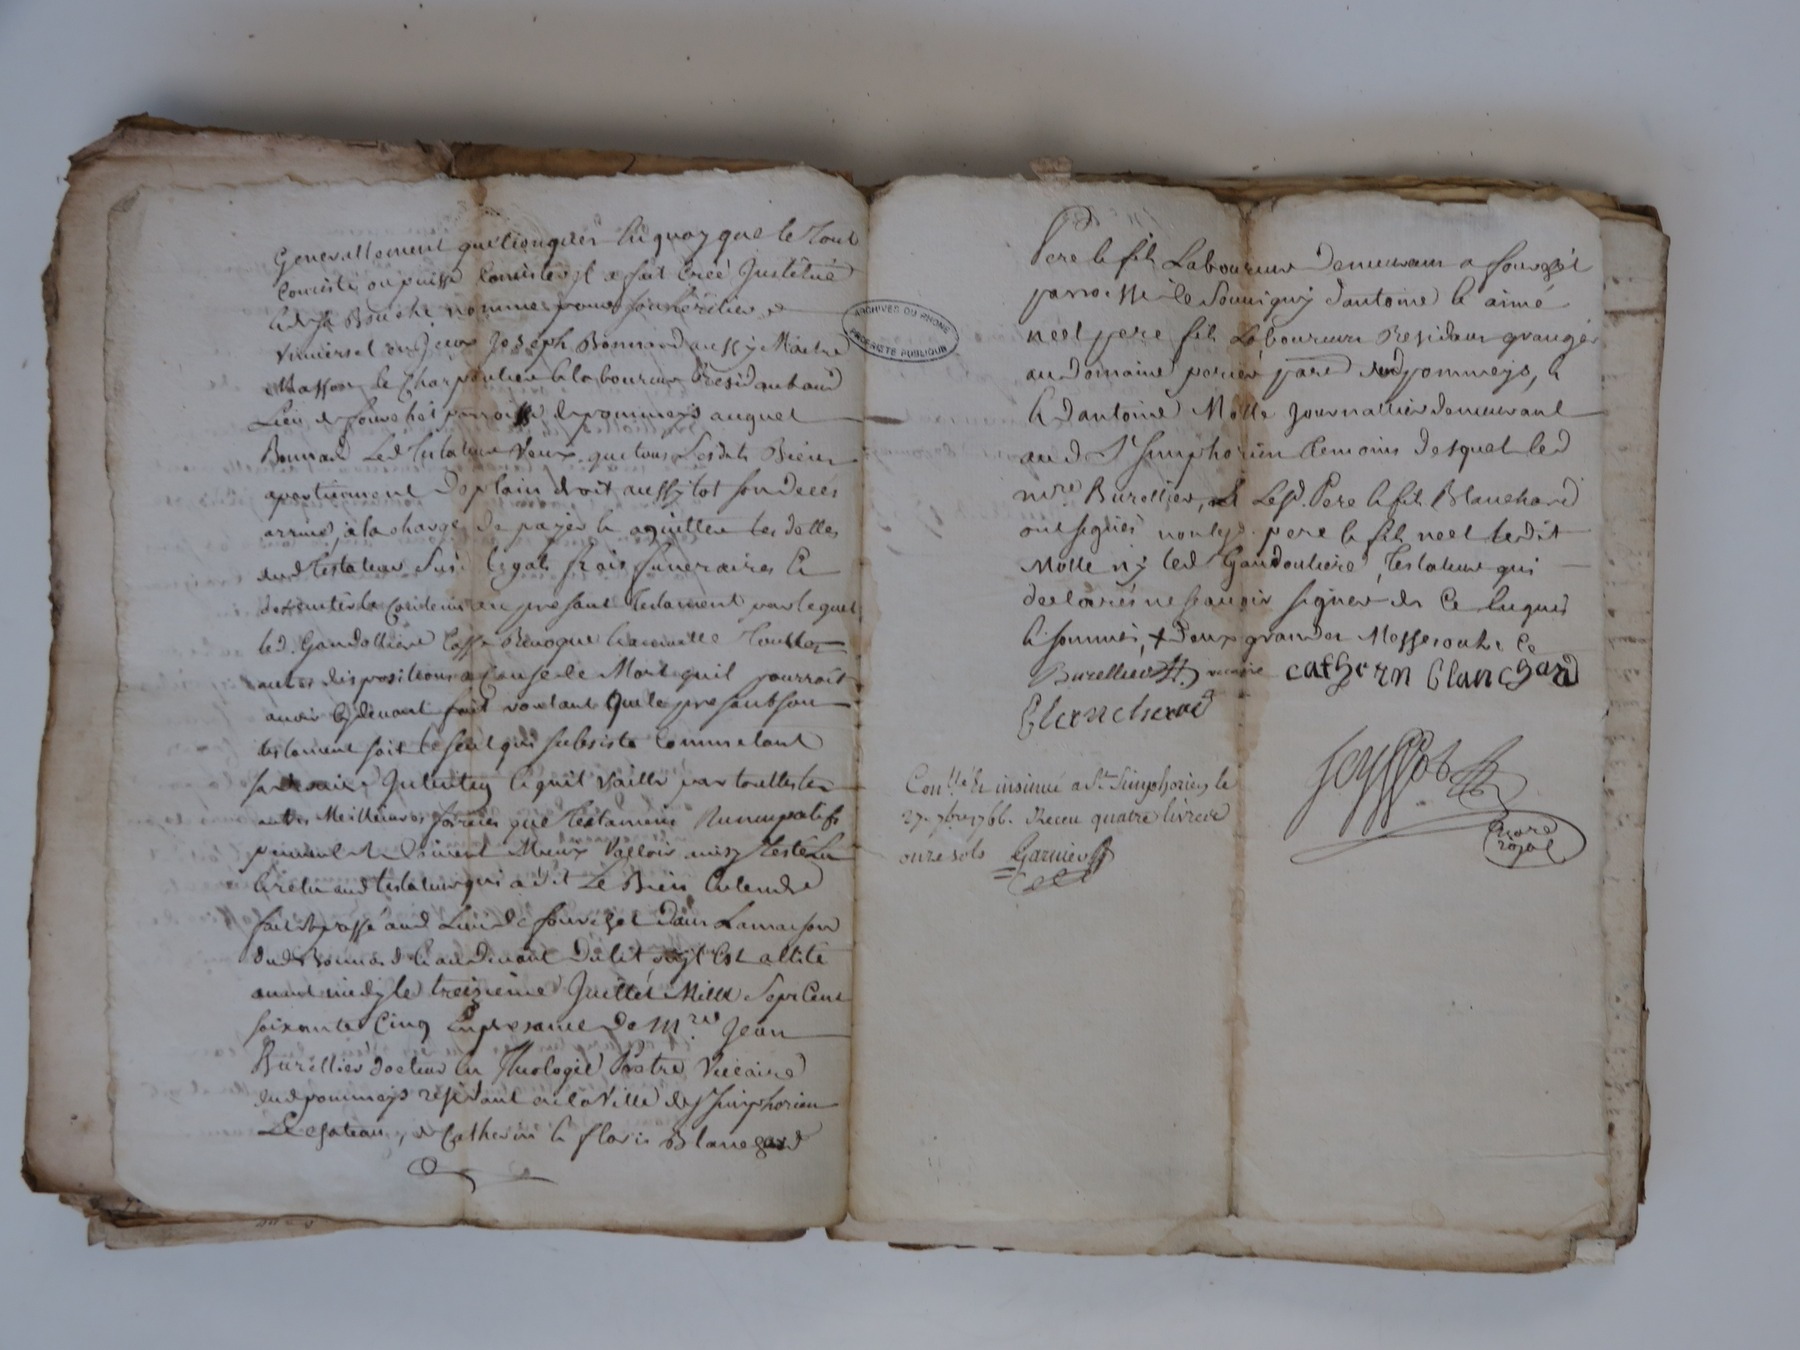 Generallement quelconques en quoy que le tout
Consiste ou puisse Consister Il a fait Créé Institué
& de sa Bouche nommé pour son héritier
universel Joseph Bonnard aussy Maitre
Masson & Charpentier & laboureur Residant aud
Lieu de fourchet parroisse de pommeys auquel
Bonnard Led testateur Veux que tous Sesdits Biens
apartiennent De plain droit aussytot son deces
arrivé, a la charge De payer & aquitter les dettes
dud testateur Legats frais funeraires &
du present testament par lequel
led. Gandolliere Casse Revoque & annulle toutes
autres dispositions a Cause de Mort quil pourroit
avoir Cydevant fait voulant que le present son
testament soit le seul qui subsiste Comme etant
Intention & quil Vaille par touttes les
autres Meilleures formes que testament Nuncupatif
peuvent & doivent Mieux Valloir
& relu aud testateur qui a dit Le Bien Entendre
fait & passé aud Lieu de Dans La maison
dud Bonnard & au Devant Du lit est alité
avant midy le treizieme Juillet Mille Sept Cent
soixante Cinq En presence De Mre Jean
Burellier docteur en Theologie Pretre Viccaire
dud pommeys residant en la Ville de St Simphorien
Le Chateau, & Catherin & floris Blanchard
Pere & fils Laboureurs Demeurans a
parroisse de d'antoine & aimé
neel pere & fils Laboureurs Residans grangers
au Domaine parr dud pommeys, &
& d'antoine Motte Journallier demeurant
aud St Simphorien temoins desquel led
mre Burellier, & Lesd Pere & fils Blanchard
ont signés non lesd pere & fils neel ledit
Motte ny led Gandouliere, testateur qui
declarés ne scavoir signer de Ce Enquis
& sommés,
Burellier vicaire catherin blanchard
Blanchard
Conllé & insinué a St Simphorien le
27. 7bre 1766. Receu quatre livres
onze sols Garnier
Nore
royal
ARCHIVES DU RHONE
PROPRIETE PUBLIQUE